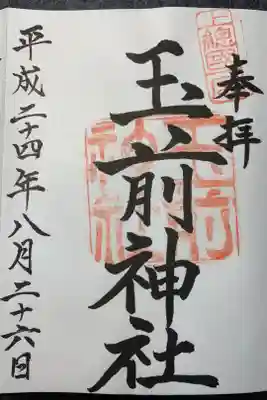 奉拝
玉前神社
平成二十四年八月二十六日